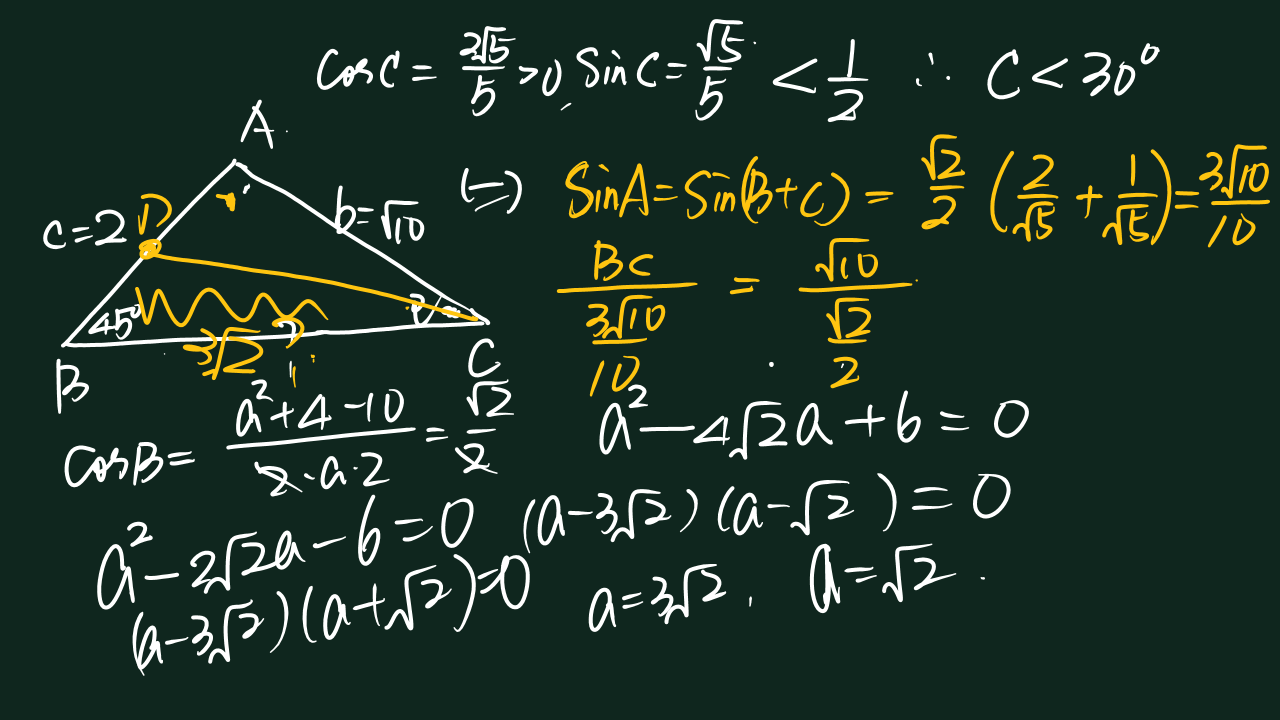 cosC = 2√5/5 > 0, sinC = √5/5 < 1/2 ∴ C < 30°
A
D
c=2
b=√10
45°
3√2
B
C
(一) sinA = sin(B+C) = √2/2 (2/√5 + 1/√5) = 3√10/10
BC/(3√10/10) = √10/(√2/2)
cosB = (a²+4-10)/(2·a·2) = √2/2
a² - 2√2a - 6 = 0
(a-3√2)(a+√2) = 0
a² - 4√2a + 6 = 0
(a-3√2)(a-√2) = 0
a = 3√2, a = √2.